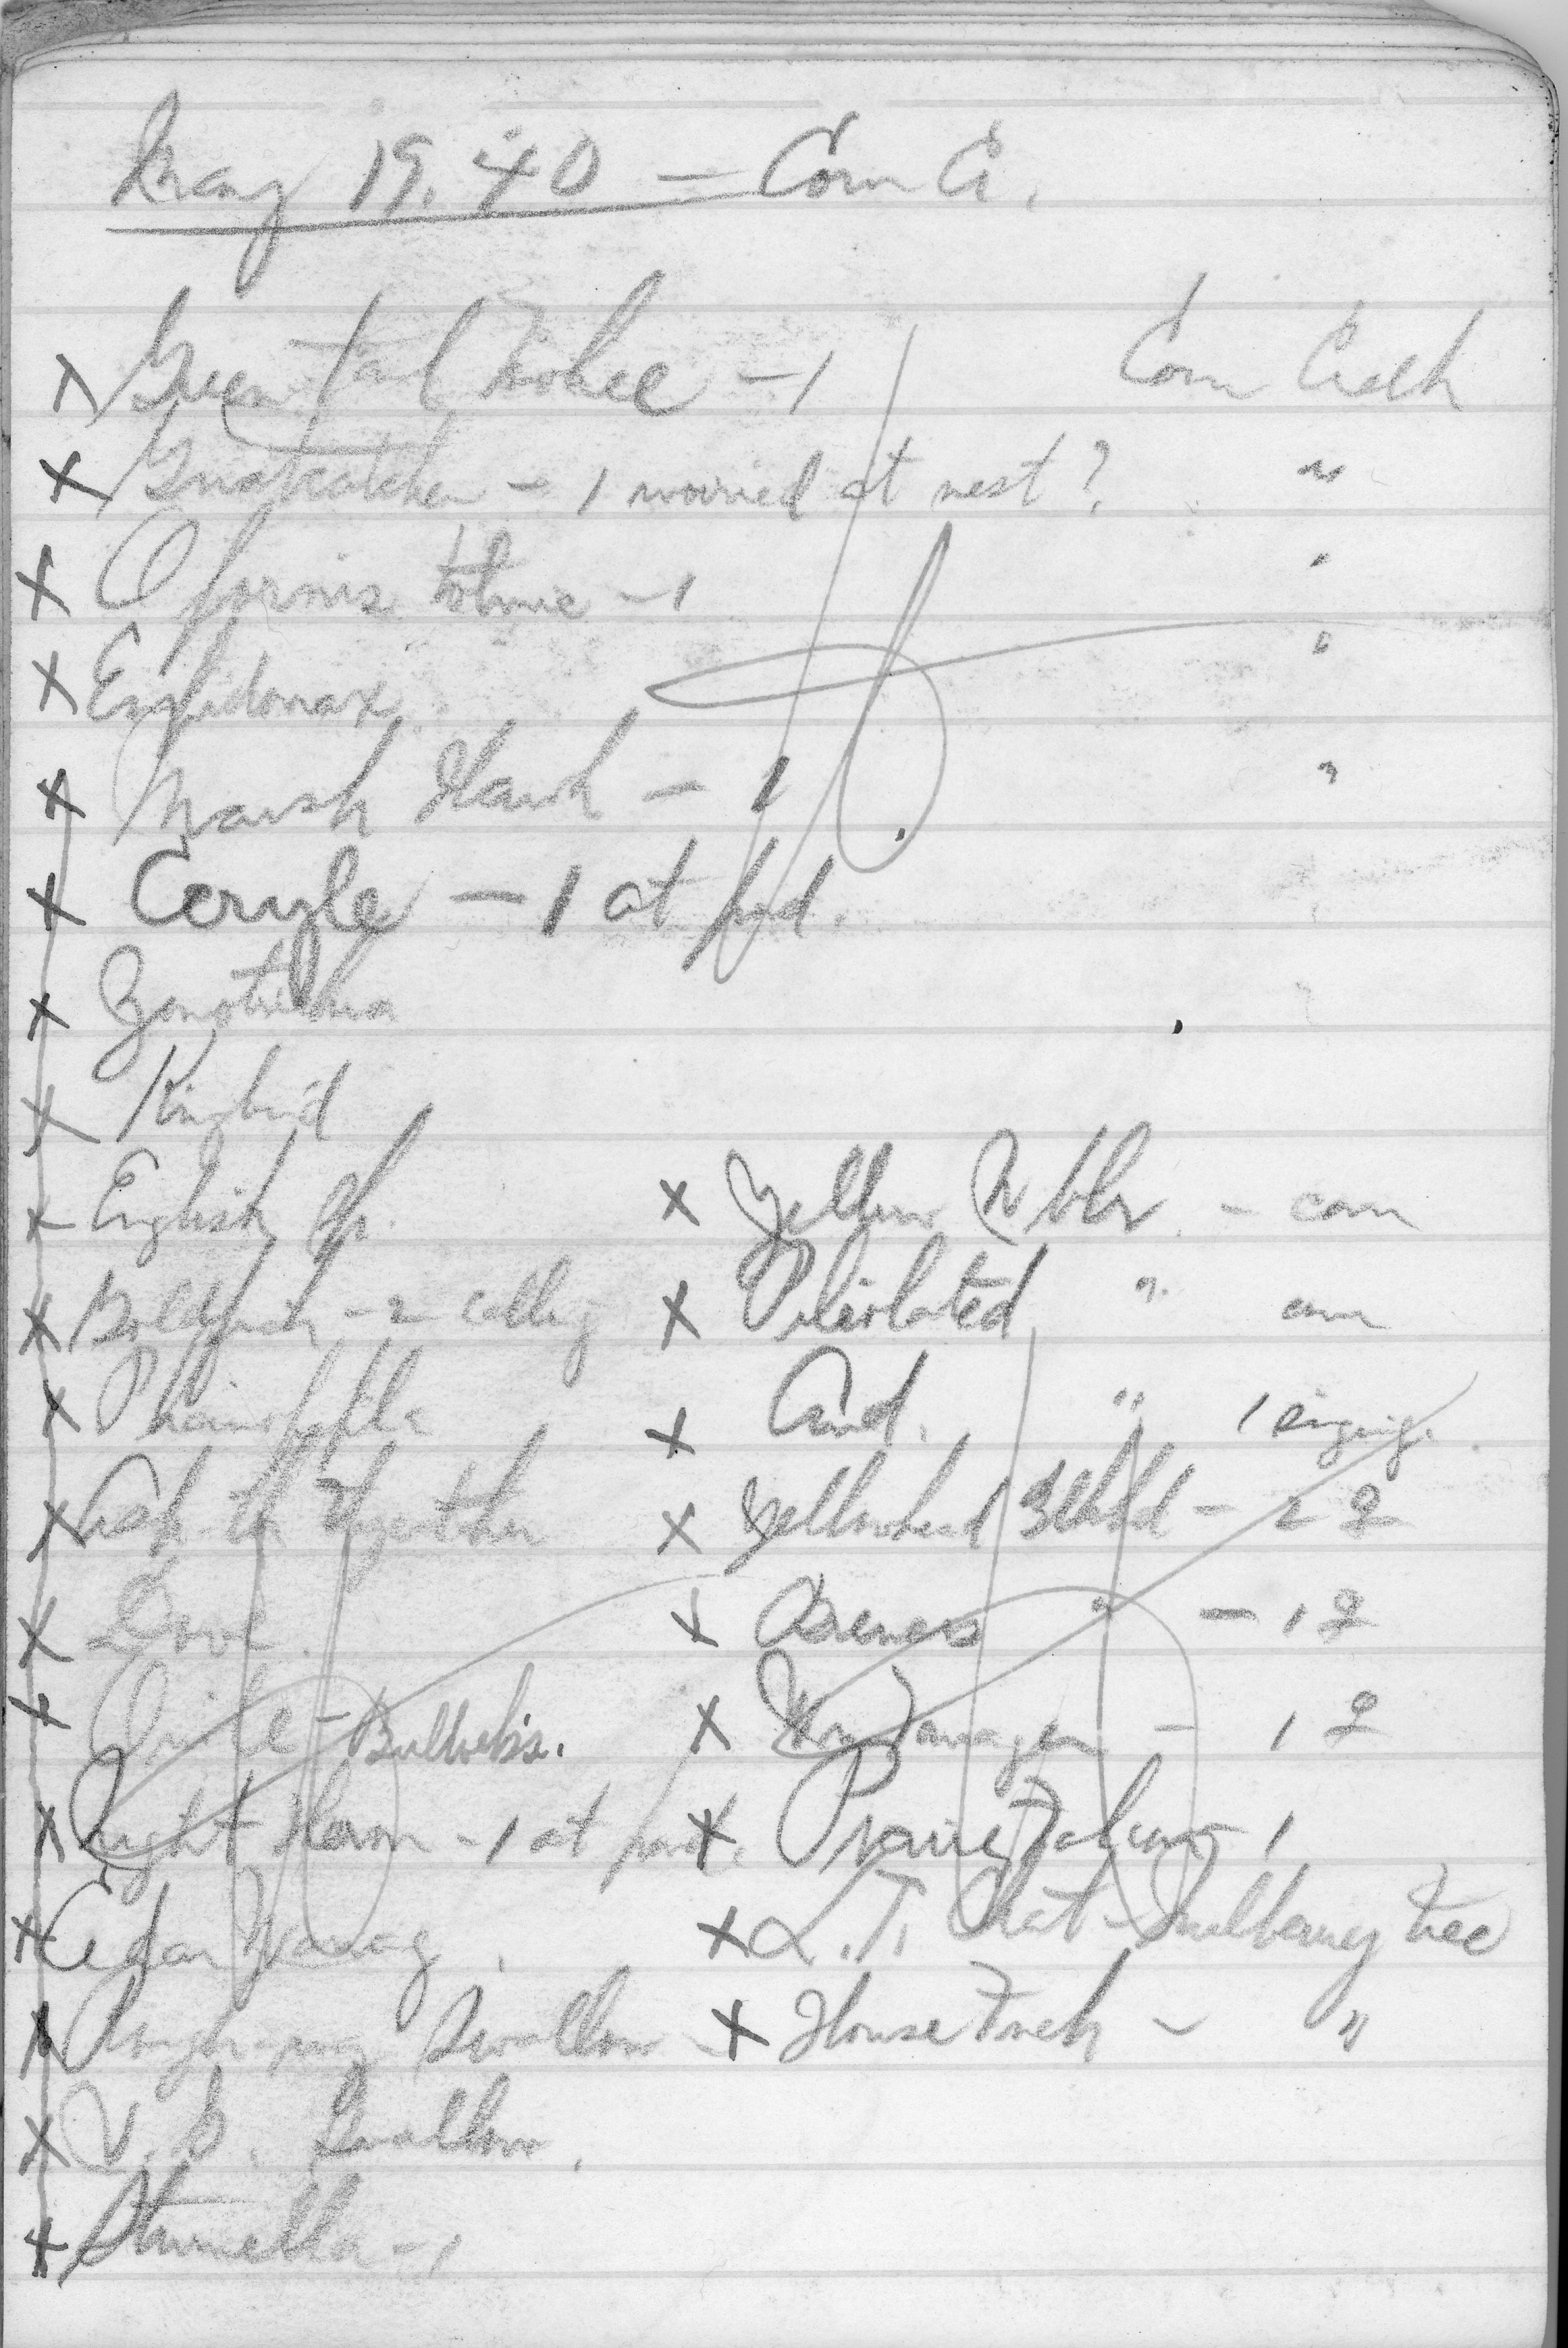 May 19. 40 – Corn C.
X Green tail Towhee – 1 Corn Creek
X Gnatcatcher – 1 worried at nest? "
X Opornis tolmie – 1 "
X Empidonax "
X Marsh Hawk – 1 "
X Ceryle – 1 at pond.
X Zonotrichia
X Kingbird
X English Sp.
X Goldfinch – 2 calling
X Phainopepla
X Ash-th Flycatcher
X Dove.
X Oriole – Bullock's.
X Night Heron – 1 at pond.
X Cedar Waxwg.
X Rough-wing Swallow
X V. G. Swallow.
X Sturnella – 1
X Yellow Wblr. – com
X Pileolated " com
X Aud. " 1 singing.
X Yellowhead Blkbd – 2 ♀
X Brewers " – 1 ♀
X Tanager – 1 ♀
X Prairie Falcon – 1
X L.T. Chat – Mulberry tree
X House Finch – "